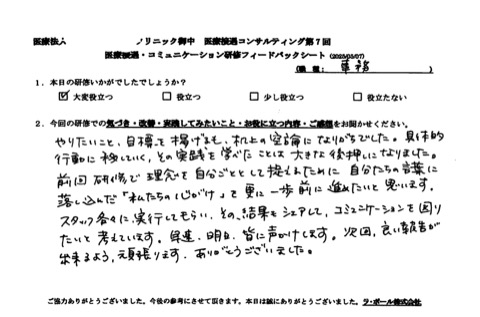 医療法人 クリニック御中 医療接遇コンサルティング第7回
医療接遇・コミュニケーション研修フィードバックシート (2023/03/07)
(職種: 事務)
1.本日の研修いかがでしたでしょうか?
☑ 大変役立つ □ 役立つ □ 少し役立つ □ 役立たない
2.今回の研修での気づき・改善・実践してみたいこと・お役に立つ内容・ご感想をお聞かせください。
やりたいこと、目標を掲げるも、机上の空論になりがちでした。具体的
行動に移していく、その実践を学べたことは大きな後押しになりました。
前回研修で理念を自分ごととして捉えるために自分たちの言葉に
落し込んだ「私たちの心がけ」を更に一歩前に進めたいと思います。
スタッフ各々に実行してもらい、その結果もシェアして、コミュニケーションを図り
たいと考えています。早速、明日、皆に声かけします。次回、良い報告が
出来るよう、頑張ります。ありがとうございました。
ご協力ありがとうございました。今後の参考にさせて頂きます。本日は誠にありがとうございました。ラ・ポール株式会社